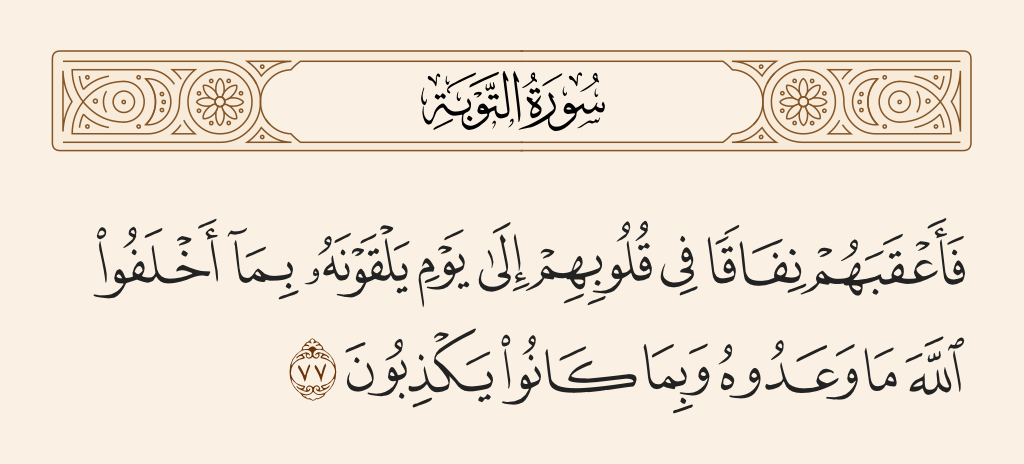 سُورَةُ التَّوۡبَةِ
فَأَعۡقَبَهُمۡ نِفَاقٗا فِي قُلُوبِهِمۡ إِلَىٰ يَوۡمِ يَلۡقَوۡنَهُۥ بِمَآ أَخۡلَفُواْ
ٱللَّهَ مَا وَعَدُوهُ وَبِمَا كَانُواْ يَكۡذِبُونَ ٧٧